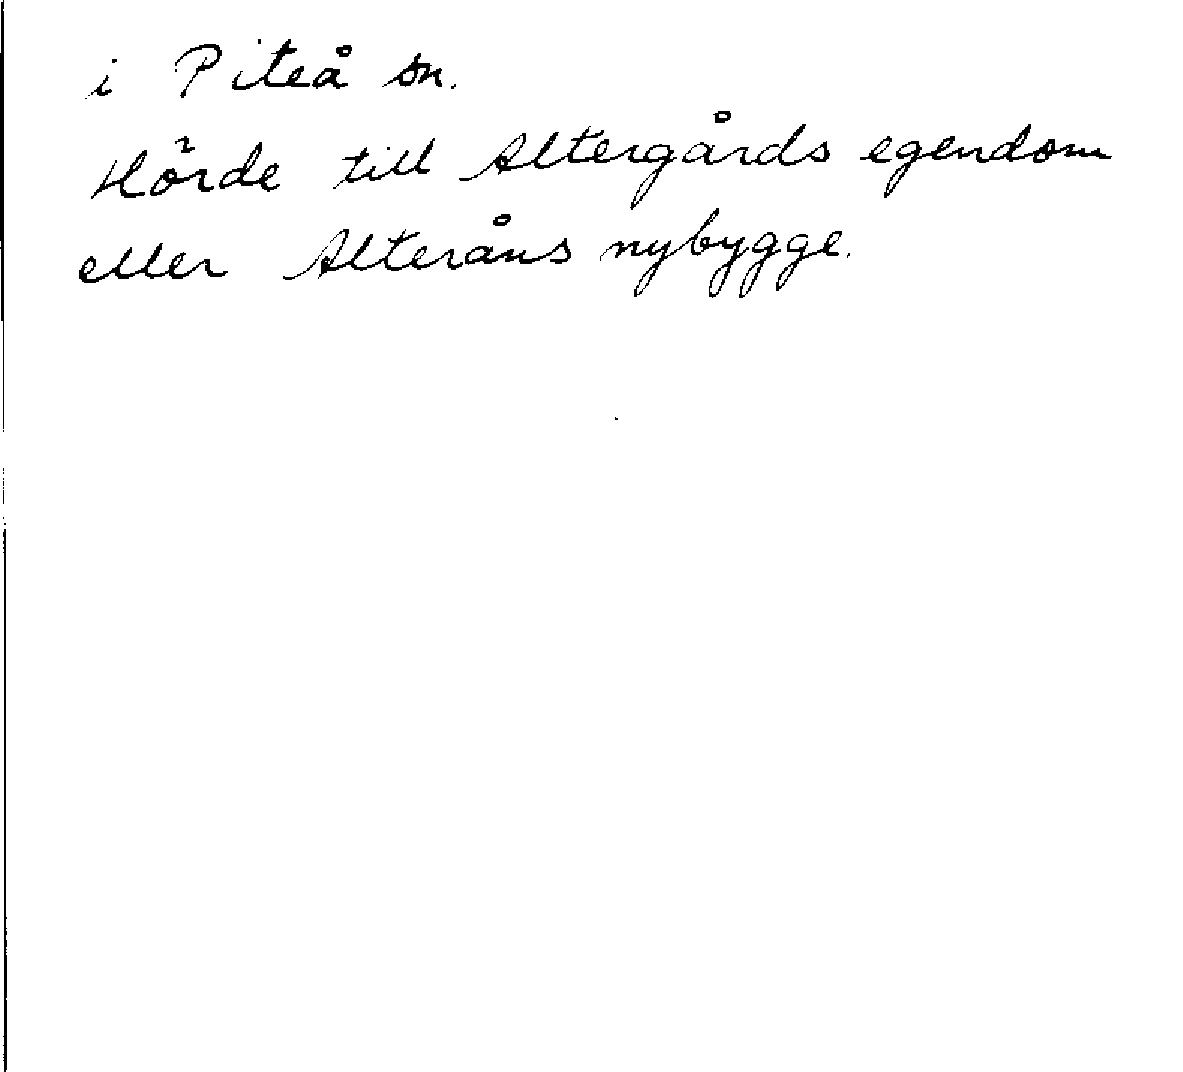 i Piteå sn.
Hörde till Altergårds egendom
eller Alteråns nybygge.